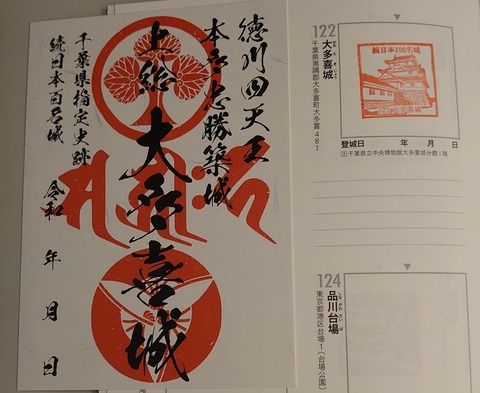 徳川四天王
本多忠勝築城
上総 大多喜城
千葉県指定史跡
続日本百名城 令和 年 月 日
122
大多喜城
千葉県夷隅郡大多喜町大多喜481
続日本100名城
大多喜城
登城日 年 月 日
千葉県立中央博物館大多喜城分館1階
124
品川台場
東京都港区台場1(台場公園)